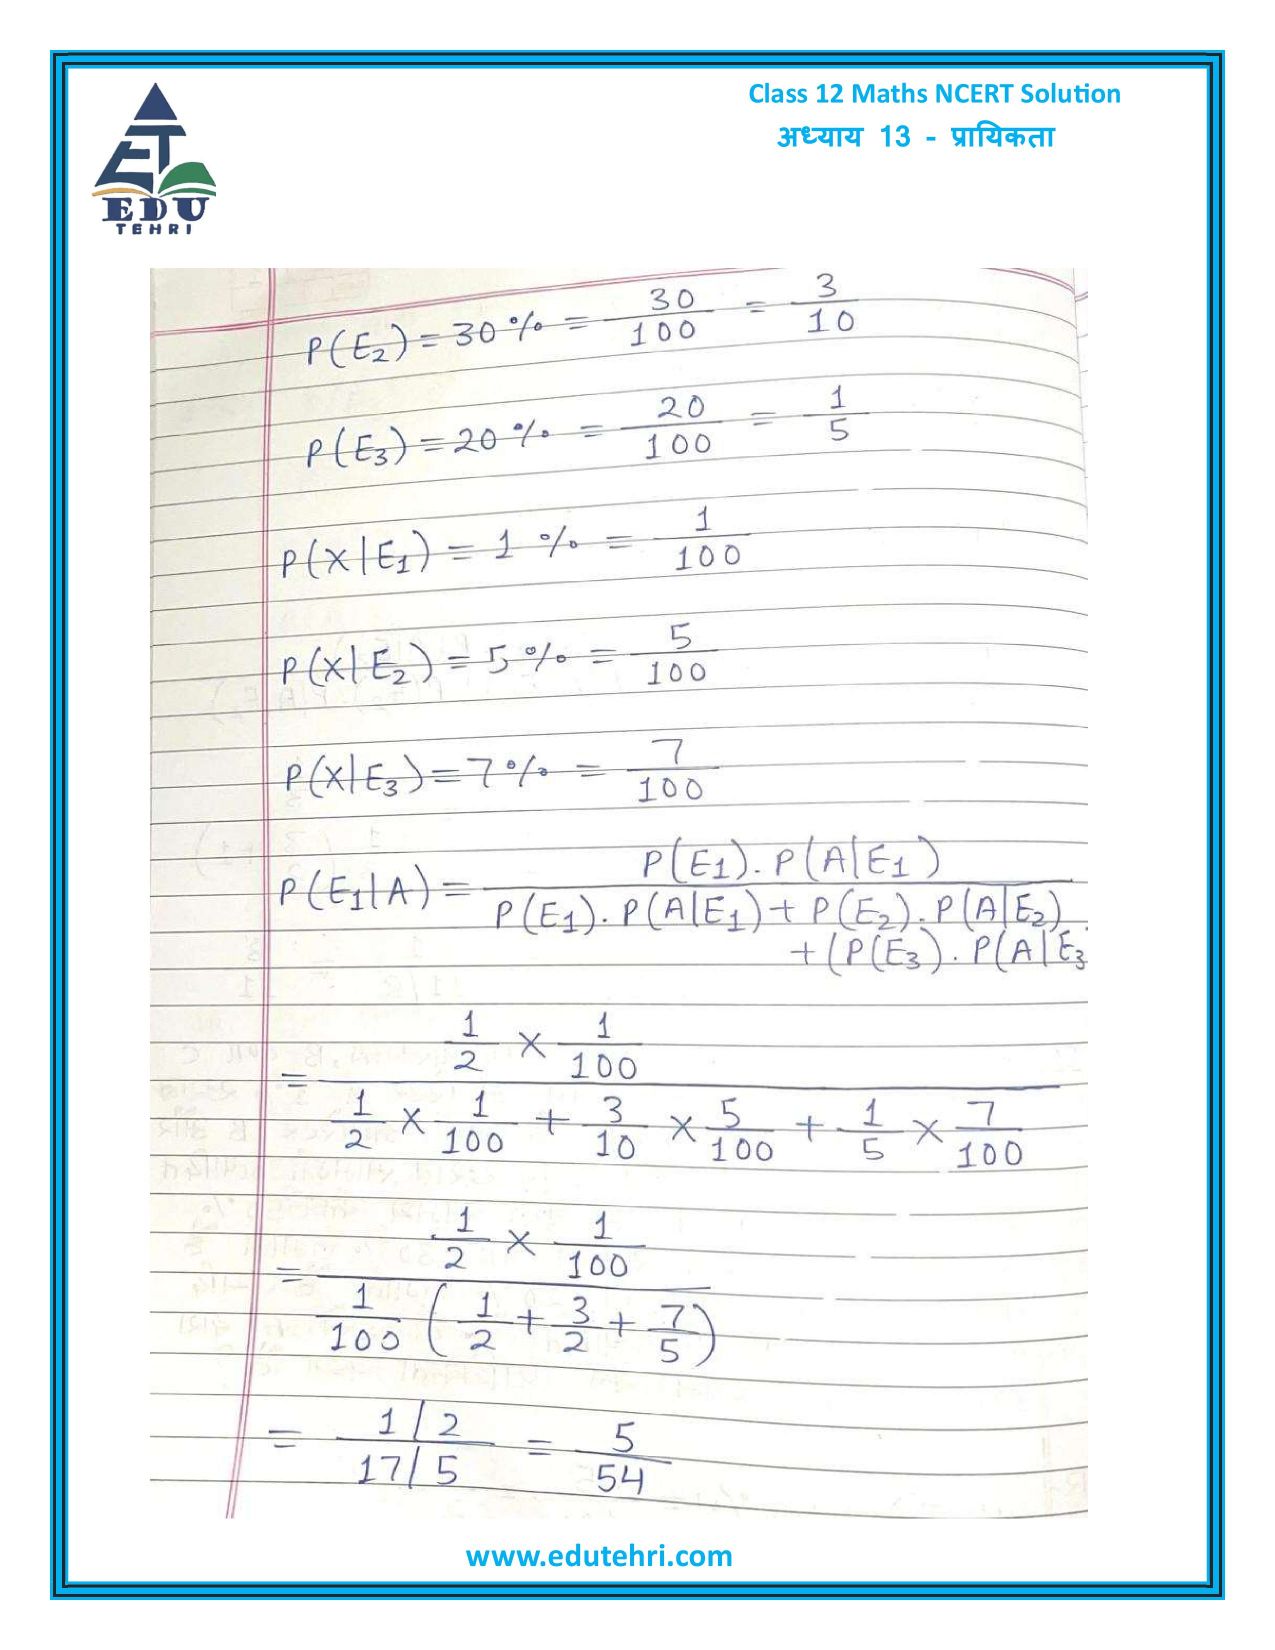 Class 12 Maths NCERT Solution
अध्याय 13 - प्रायिकता
EDU
TEHRI
P(E₂) = 30% = 30/100 = 3/10
P(E₃) = 20% = 20/100 = 1/5
P(X|E₁) = 1% = 1/100
P(X|E₂) = 5% = 5/100
P(X|E₃) = 7% = 7/100
P(E₁|A) = P(E₁). P(A|E₁)
P(E₁). P(A|E₁) + P(E₂). P(A|E₂)
+ (P(E₃). P(A|E₃
= 1/2 × 1/100
1/2 × 1/100 + 3/10 × 5/100 + 1/5 × 7/100
= 1/2 × 1/100
1/100 (1/2 + 3/2 + 7/5)
= 1/2 / 17/5 = 5/54
www.edutehri.com